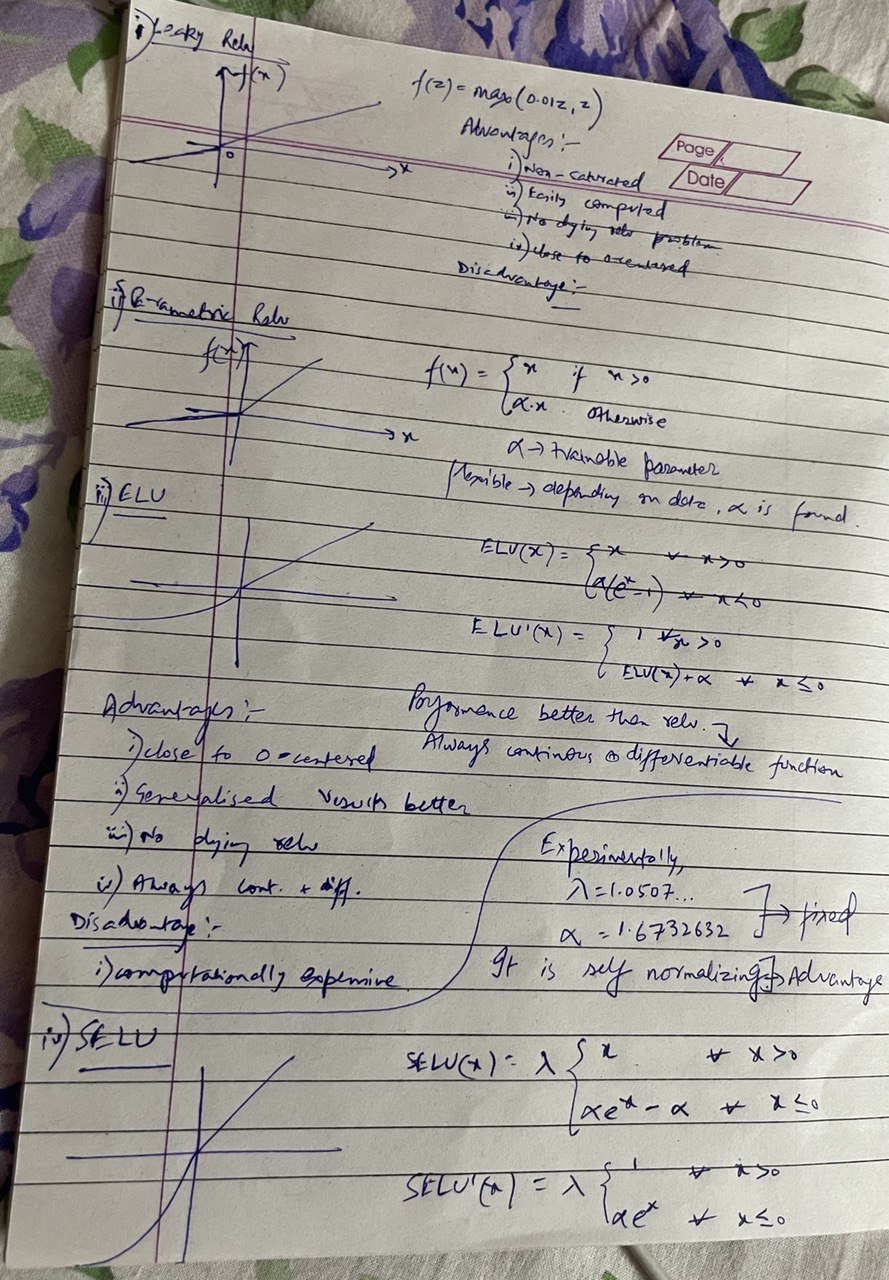 i) Leaky Relu
f(x)
0
x
f(z) = max(0.01z, z)
Advantages :-
Page
Date
i) Non-saturated
ii) Easily computed
iii) No dying relu problem
iv) close to 0-centered
Disadvantage :-
ii) Parametric Relu
f(x)
x
f(x) = { x if x > 0
α.x otherwise
α → trainable parameter
flexible → depending on data, α is found.
iii) ELU
ELU(x) = { x ∀ x > 0
α(eˣ-1) ∀ x ≤ 0
ELU'(x) = { 1 ∀ x > 0
ELU(x) + α ∀ x ≤ 0
Performance better than relu.
Always continous & differentiable function
Advantages :-
i) close to 0-centered
ii) Generalised results better
iii) No dying relu
iv) Always cont. + diff.
Disadvantage :-
i) computationally expensive
Experimentally,
λ = 1.0507...
α = 1.6732632
→ fixed
It is self normalizing → Advantage
iv) SELU
SELU(x) = λ { x ∀ x > 0
αeˣ - α ∀ x ≤ 0
SELU'(x) = λ { 1 ∀ x > 0
αeˣ ∀ x ≤ 0